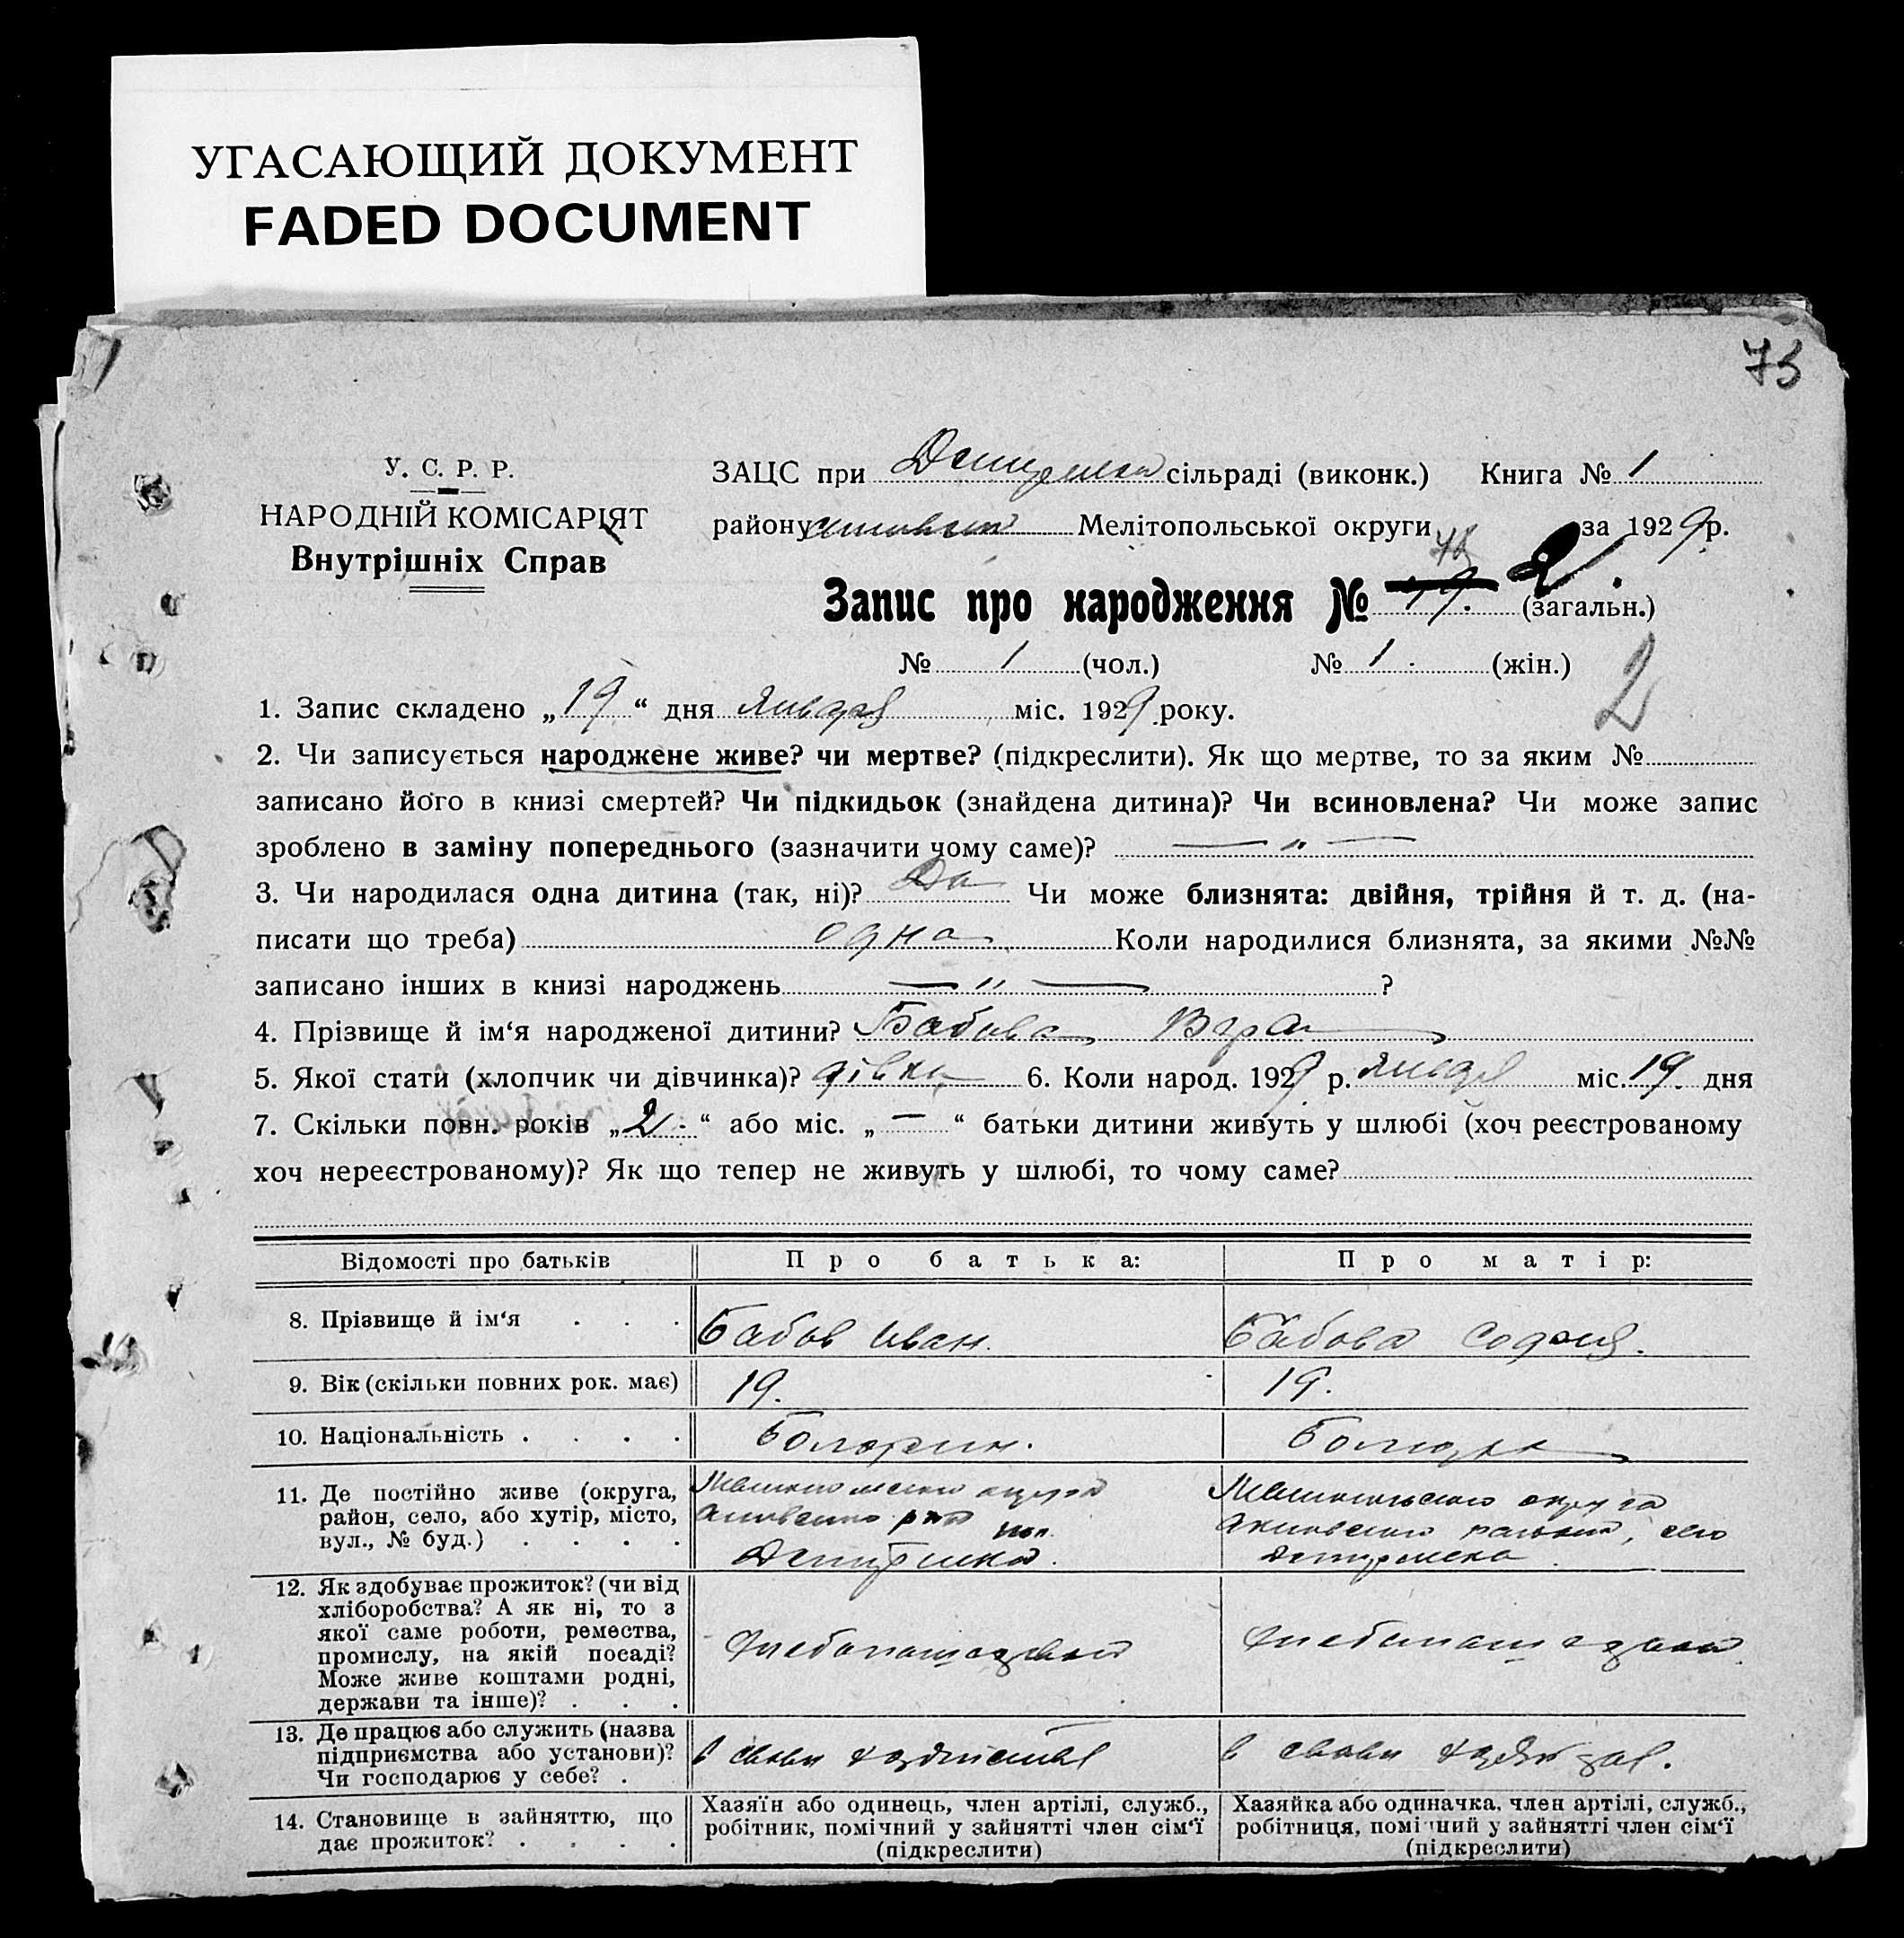 УГАСАЮЩИЙ ДОКУМЕНТ
FADED DOCUMENT
73
У. С. Р. Р.
НАРОДНІЙ КОМІСАРІЯТ
Внутрішніх Справ
ЗАЦС при сільраді (виконк.) Книга № 1
району Мелітопольської округи за 1929 р.
Запис про народження № 19. 2 (загальн.)
№ 1 (чол.) № 1 (жін.)
2
1. Запис складено „19“ дня Января міс. 1929 року.
2. Чи записується народжене живе? чи мертве? (підкреслити). Як що мертве, то за яким №
записано його в книзі смертей? Чи підкидьок (знайдена дитина)? Чи всиновлена? Чи може запис
зроблено в заміну попереднього (зазначити чому саме)? — „ —
3. Чи народилася одна дитина (так, ні)? Да Чи може близнята: двійня, трійня й т. д. (на-
писати що треба) одна Коли народилися близнята, за якими №№
записано інших в книзі народжень — „ — ?
4. Прізвище й ім‘я народженої дитини? Бабова Вера
5. Якої стати (хлопчик чи дівчинка)? дівка 6. Коли народ. 1929 р. Января міс. 19 дня
7. Скільки повн. років „2“ або міс. „—“ батьки дитини живуть у шлюбі (хоч реєстрованому
хоч нереєстрованому)? Як що тепер не живуть у шлюбі, то чому саме?
Відомості про батьків Про батька: Про матір:
8. Прізвище й ім‘я . . . Бабов Иван. Бабова София.
9. Вік (скільки повних рок. має) 19. 19.
10. Національність . . . . Болгарин. Болгарка
11. Де постійно живе (округа, Мелитопольского округа Мелитопольского округа
район, село, або хутір, місто, Акимовского Акимовского района, село
вул., № буд.) . . . .
12. Як здобуває прожиток? (чи від
хліборобства? А як ні, то з
якої саме роботи, ремества,
промислу, на якій посаді? Хлебопашеством Хлебопашеством
Може живе коштами родні,
держави та інше)? . . .
13. Де працює або служить (назва
підприємства або установи)? в своем хозяйстве в своем
Чи господарює у себе? .
14. Становище в зайняттю, що Хазяїн або одинець, член артілі, служб., Хазяйка або одиначка, член артілі, служб.,
дає прожиток? . . . . робітник, помічний у зайнятті член сім‘ї робітниця, помічний у зайнятті член сім‘ї
(підкреслити) (підкреслити)